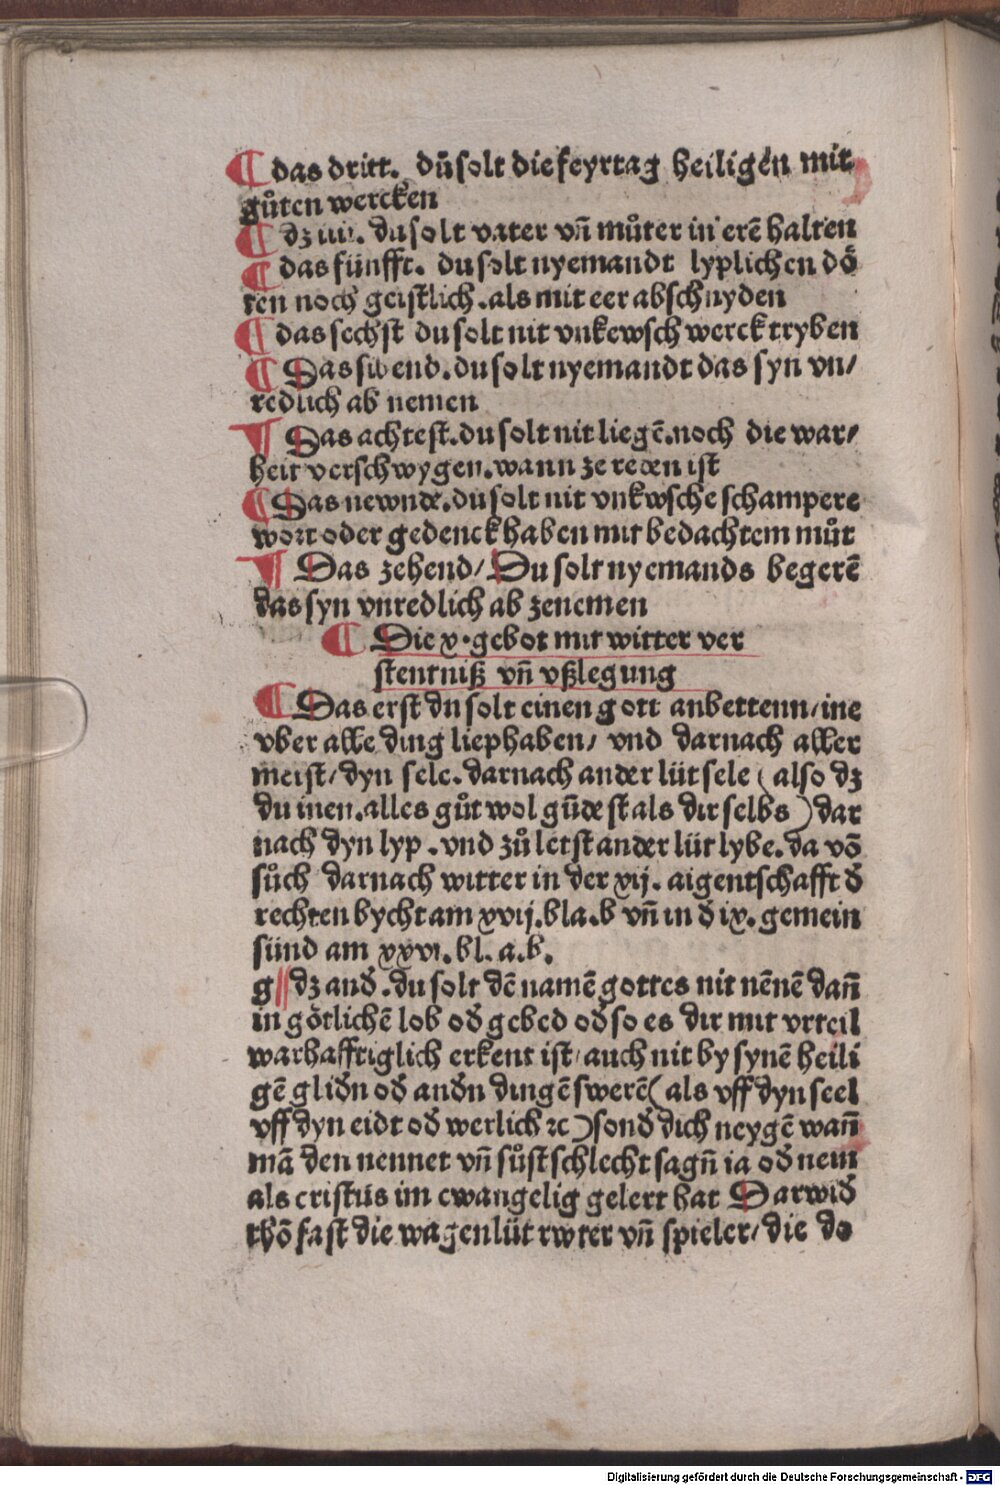 ¶ das dritt. dũ solt die feyrtag heiligen mit
gůten wercken
¶ dz iiii. du solt vater vñ můter in erẽ halten
¶ das fünfft. du solt nyemandt lyplichen dö
ten noch geistlich .als mit eer abschnyden
¶ das sechst du solt nit vnkewsch werck tryben
¶ Das sibend. du solt nyemandt das syn vn/
redlich ab nemen
¶ Das achtest. du solt nit liegẽ. noch die war/
heit verschwygen. wann ze reden ist
¶ Das newnde. du solt nit vnkwsche schampere
wort oder gedenck haben mit bedachtem můt
¶ Das zehend/ Du solt nyemands begerẽ
das syn vnredlich ab zenemen
¶ Die x. gebot mit witter ver
stentniß vñ vßlegung
¶ Das erst du solt einen gott anbettenn/ ine
vber alle ding liephaben/ vnd darnach aller
meist/ dyn sele. darnach ander lüt sele ( also dz
du inen. alles gůt wol gũdest als dir selbs ) dar
nach dyn lyp . vnd zů letst ander lüt lybe. da võ
sůch darnach witter in der xij. aigentschafft ð
rechten bycht am xvij. bla. b vñ in ð ix. gemein
sünd am xxvi. bl. a. b.
g// dz andð . du solt dẽ namẽ gottes nit nẽnẽ dañ
in götlichẽ lob oð gebed oð so es dir mit vrteil
warhafftiglich erkent ist/ auch nit by synẽ heili
gẽ gliðn oð andðn dingẽ swerẽ ( als vff dyn seel
vff dyn eidt oð werlich ⁊c ) sonð dich neygẽ wañ
mã den nennet vñ sůst schlecht sagñ ia oð nein
als cristus im ewangelig gelert hat Darwið
thõ fast die wagenlüt rwter vñ spieler/ die do
Digitalisierung gefördert durch die Deutsche Forschungsgemeinschaft - DFG